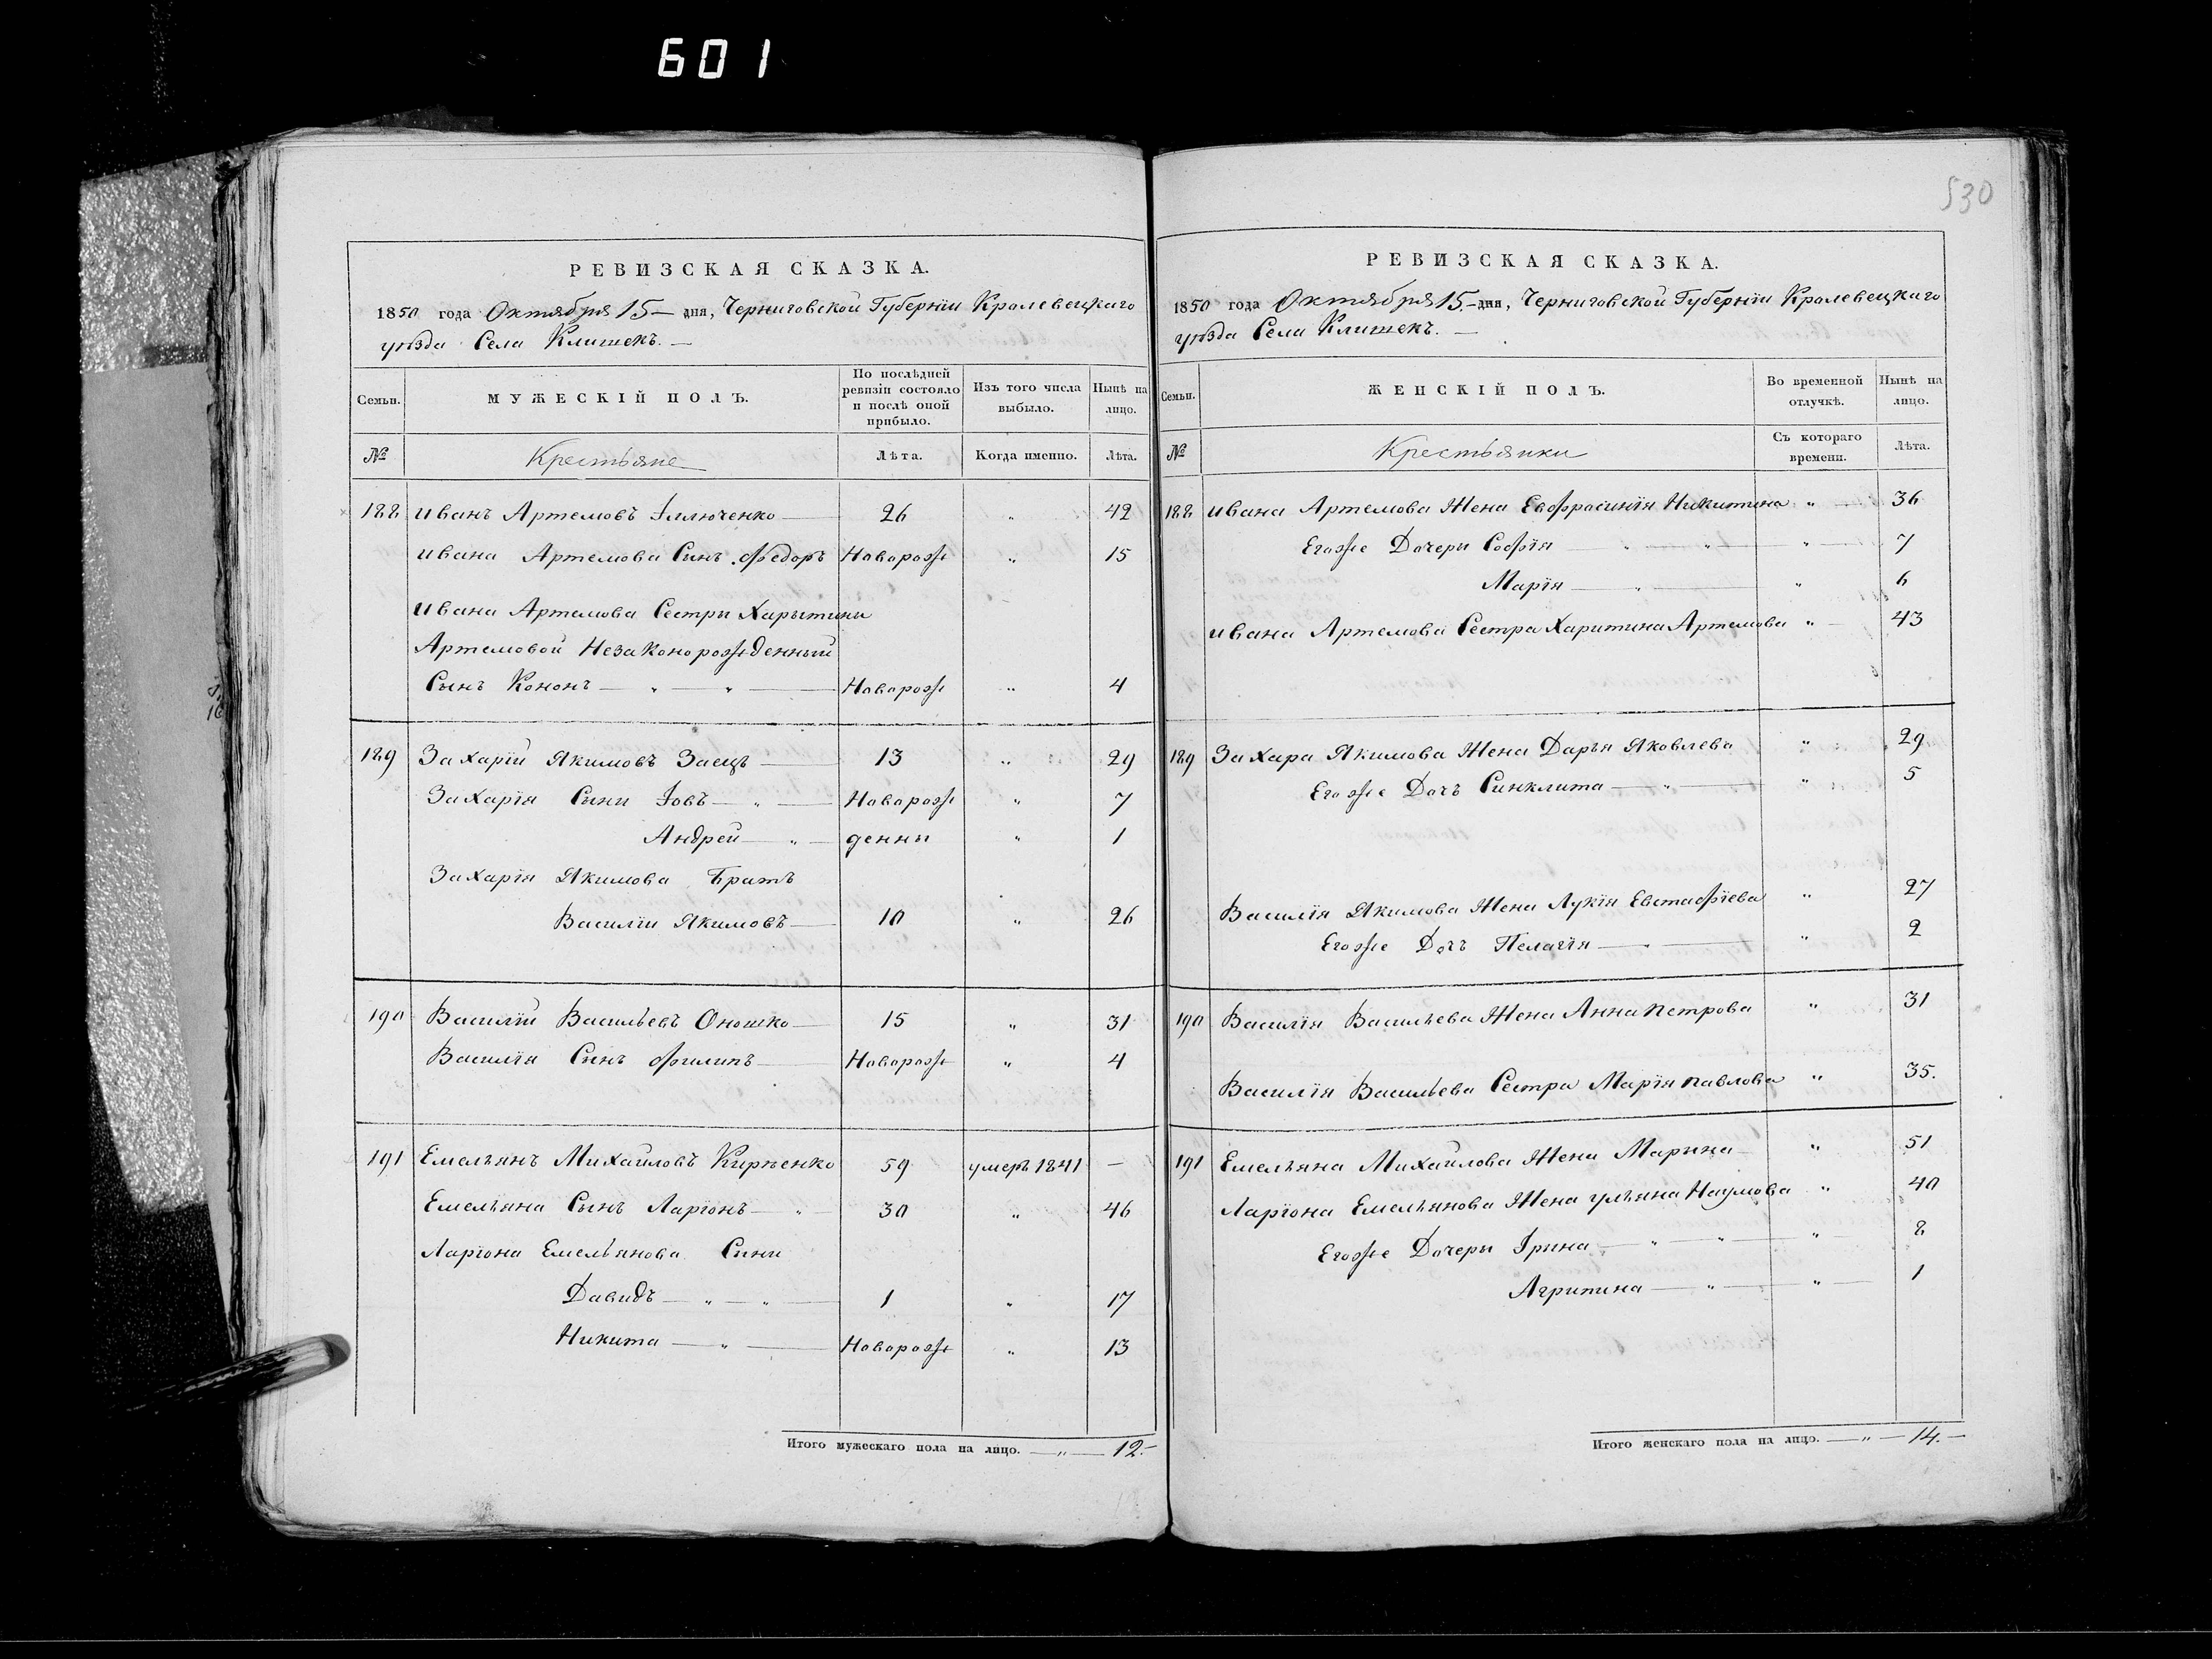 601
530
РЕВИЗСКАЯ СКАЗКА.
1850 года Октября 15 — дня, Черниговской Губерніи Кролевецкаго
уѣзда Села Клишекъ. —
Семьи.
МУЖЕСКІЙ ПОЛЪ.
По послѣдней ревизіи состояло и послѣ оной прибыло.
Изъ того числа выбыло.
Нынѣ на лицо.
№
Крестьяне
Лѣта.
Когда именно.
Лѣта.
188 Иванъ Артемовъ Іллюченко — 26 „ 42
Ивана Артемова Сынъ Федоръ Еоворож „ 15
Ивана Артемова Сестры Харытыны
Артемовой Незаконорожденный
Сынъ Кононъ — „ — „ — Новорож „ 4
189 Захарій Якимовъ Заецъ — 13 „ 29
Захарія Сыны Іовъ — „ — Новорож „ 7
Андрей — „ — денны „ 1
Захарія Якимова Братъ
Василій Якимовъ — 10 „ 26
190 Василій Васильевъ Оношко — 15 „ 31
Василія Сынъ Филипъ — Новорож „ 4
191 Емельянъ Михайловъ Кирпенко 59 умеръ 1841 —
Емельяна Сынъ Ларіонъ — „ 30 „ 46
Ларіона Емельянова Сыны
Давидъ — „ — „ — 1 „ 17
Никита — „ — Новорож „ 13
Итого мужескаго пола на лицо. — „ — 12. —
РЕВИЗСКАЯ СКАЗКА.
1850 года Октября 15. — дня, Черниговской Губерніи Кролевецкаго
уѣзда Села Клишекъ. —
Семьи.
ЖЕНСКІЙ ПОЛЪ.
Во временной отлучкѣ.
Нынѣ на лицо.
№
Крестьянки
Съ котораго времени.
Лѣта.
188 Ивана Артемова Жена Евфрасинія Никитина „ — 36
Егоже Дочери Софія „ — „ — „ — 7
Марія — „ — „ 6
Ивана Артемова Сестра Харитина Артемова „ — 43
189 Захара Якимова Жена Дарья Яковлева „ 29
Егоже Дочъ Синклита — „ — „ 5
Василія Якимова Жена Лукія Евстафіева „ 27
Егоже Дочъ Пелагія — „ — „ 2
190 Василія Васильева Жена Анна Петрова „ 31
Василія Васильева Сестра Марія Павлова „ 35.
191 Емельяна Михайлова Жена Марына — „ 51
Ларіона Емельянова Жена Ульяна Наумова „ 40
Егоже Дочери Ірина — „ — „ — „ — 8
Агрипина — „ — „ — 1
Итого женскаго пола на лицо. — „ — 14. —